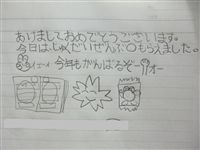 あけましておめでとうございます。
今日はしゅくだいぜんぶ○もらえました。
イエーイ 今年もがんばるぞー オー